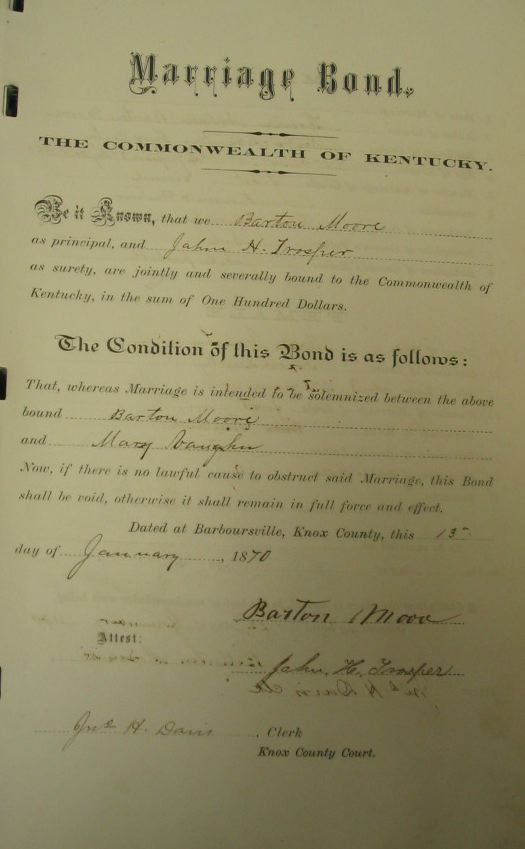 Marriage Bond.
THE COMMONWEALTH OF KENTUCKY.
Be it Known, that we Barton Moore
as principal, and Jahn H. Trosper
as surety, are jointly and severally bound to the Commonwealth of
Kentucky, in the sum of One Hundred Dollars.
The Condition of this Bond is as follows:
That, whereas Marriage is intended to be solemnized between the above
bound Barton Moore
and Mary Vaughn
Now, if there is no lawful cause to obstruct said Marriage, this Bond
shall be void, otherwise it shall remain in full force and effect.
Dated at Barboursville, Knox County, this 13th
day of January, 1870
Barton Moore
Attest:
Jahn, H, Trosper
Jno H. Davis, Clerk
Knox County Court.